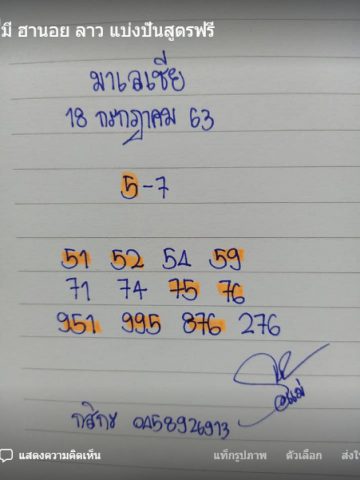 มี ฮานอย ลาว แบ่งปันสูตรฟรี
มาเลเซีย
18 กรกฎาคม 63
5-7
51 52 54 59
71 74 75 76
951 995 876 276
กสิกร 0458926913
แสดงความคิดเห็น แท็กรูปภาพ ตัวเลือก